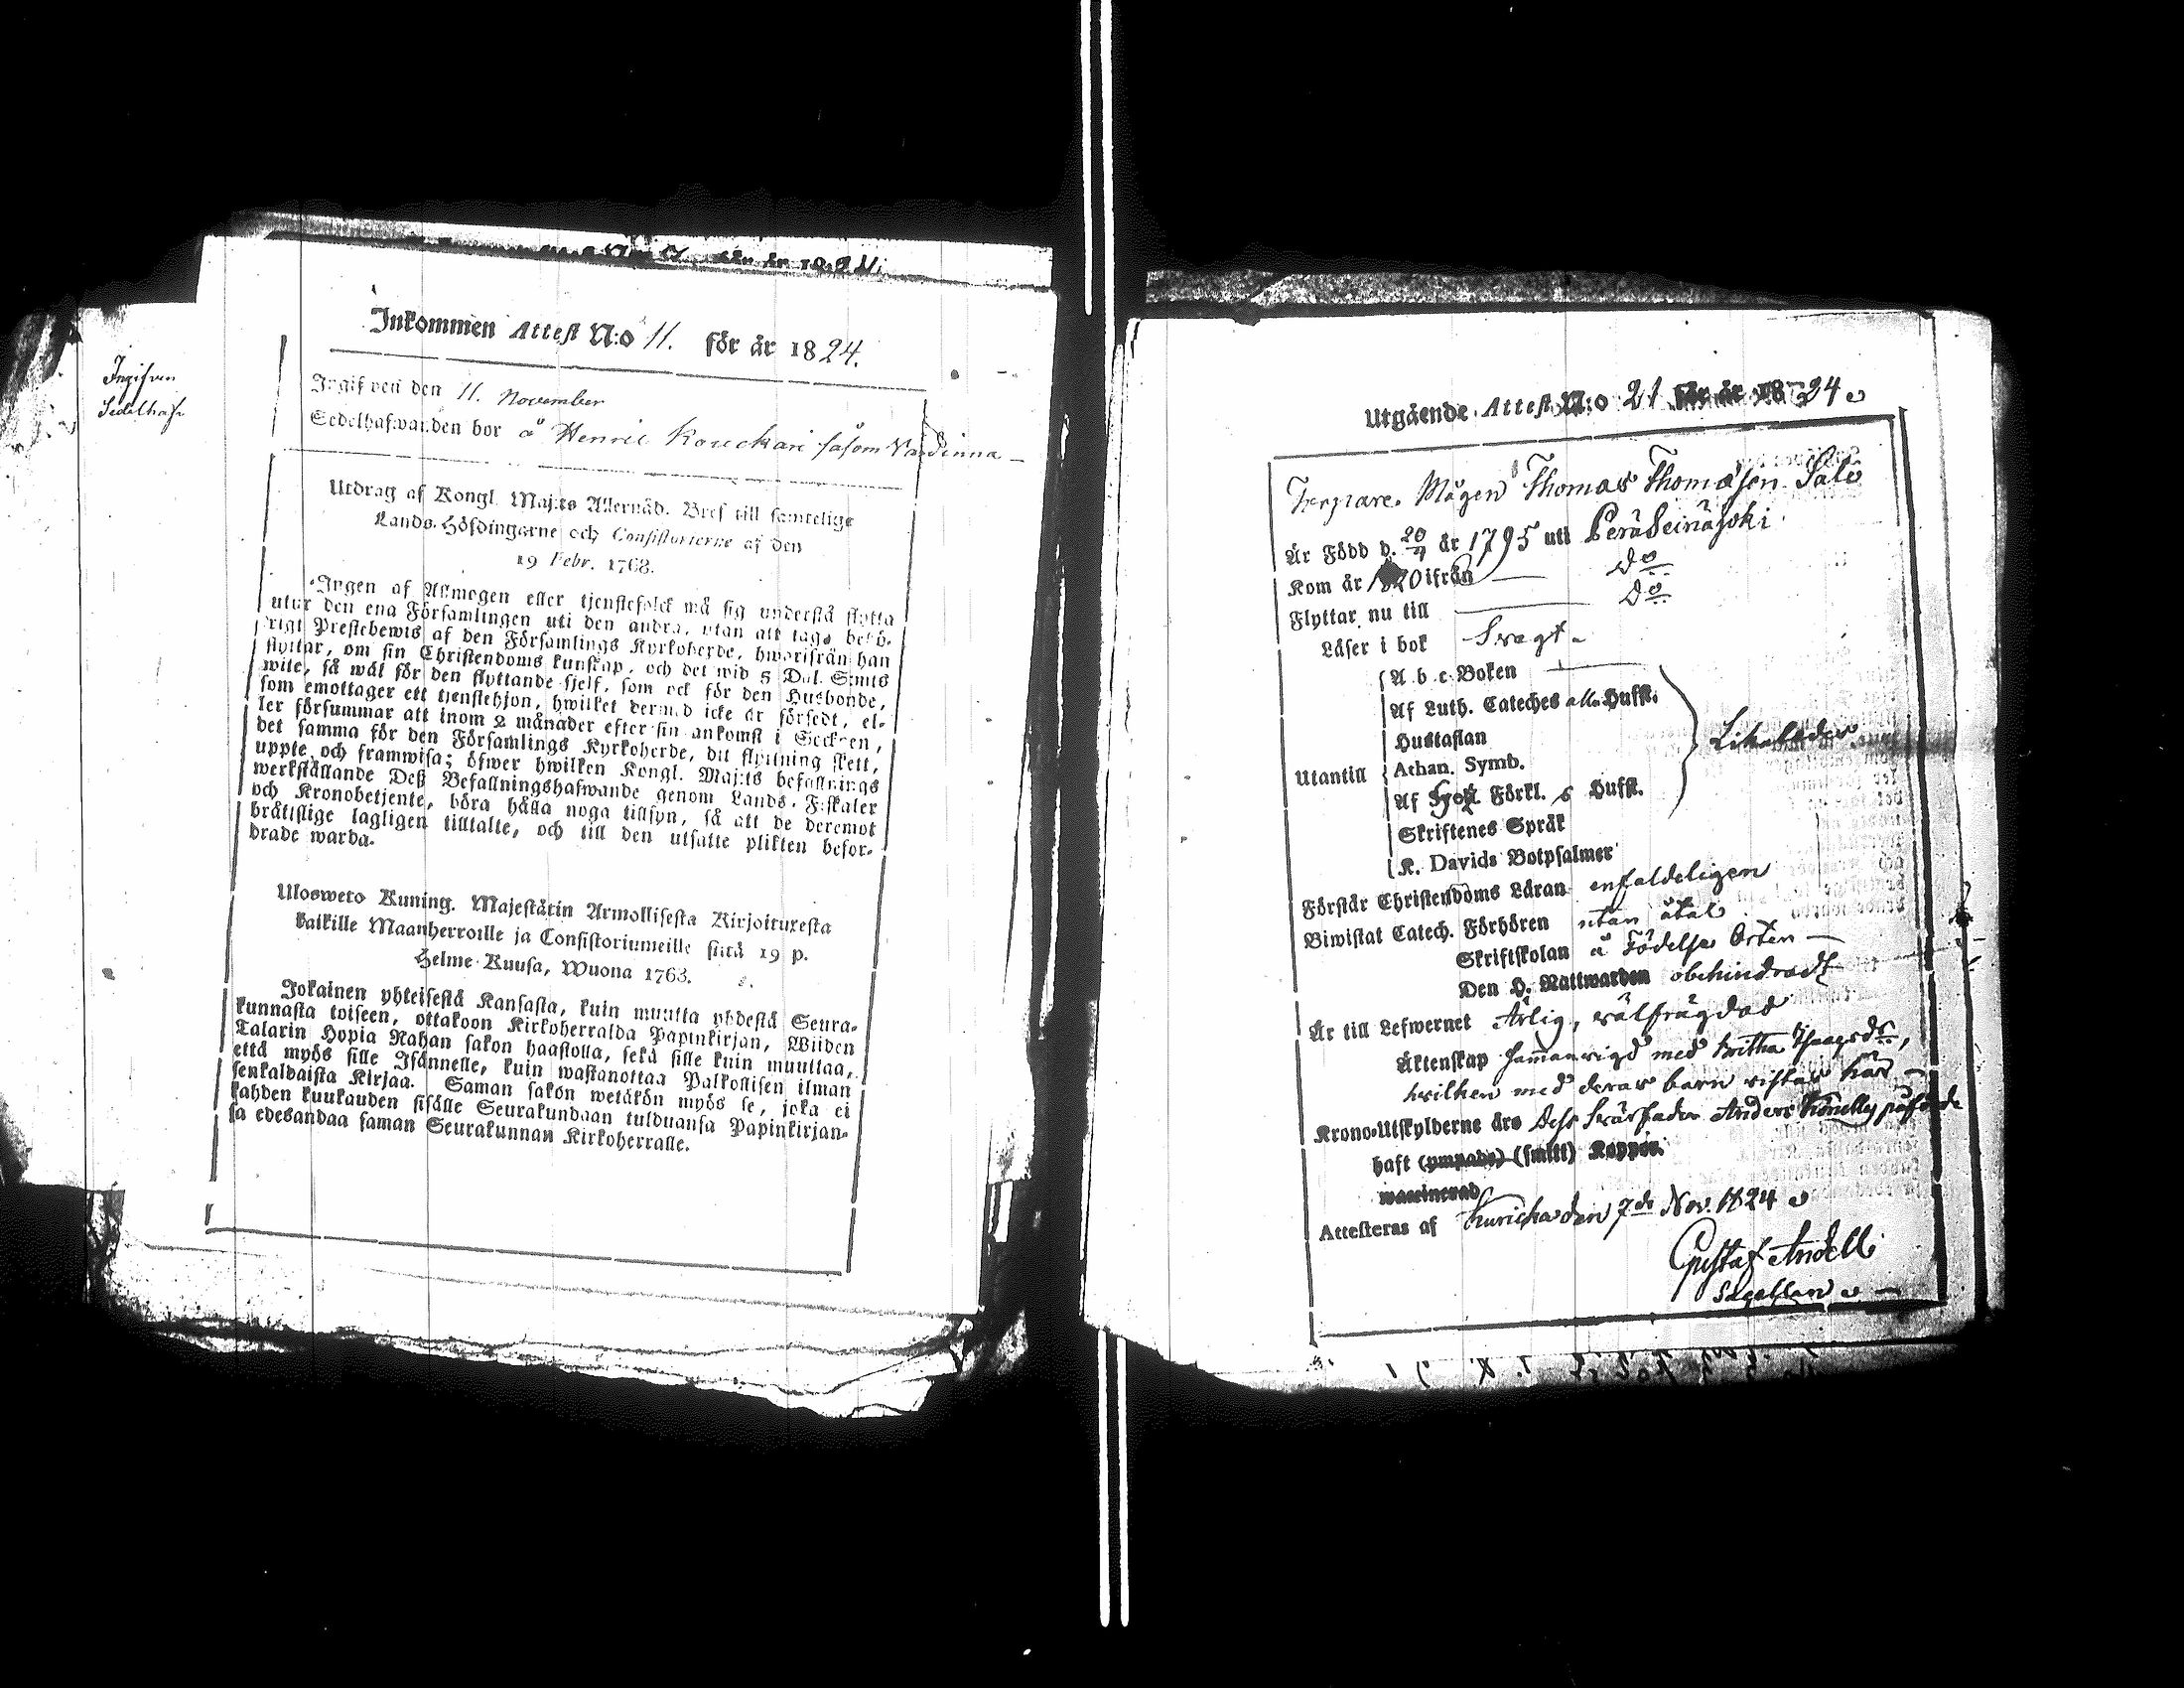 Ingifven
Sedelhafv
Inkommen Attest N:o 11. för år 1824.
Ingifven den 11. November
Sedelhafwanden bor å Henric Kouckari såsom Värdinna
Utdrag af Kongl. Maj:ts Allernåd. Bref till samtelige
Lands-Höfdingarne och Consistorierne af den
19 Febr. 1768.
Ingen af Allmogen eller tjenstefolck må sig understå flytta
utur den ena Församlingen uti den andra, utan att taga behö-
rigt Prestebewis af den Församlings Kyrkoherde, hwarifrån han
flyttar, om sin Christendoms kunskap, och det wid 5 Dal. S:mts
wite, så wäl för den flyttande sjelf, som ock för den Husbonde,
som emottager ett tjenstehjon, hwilket dermed icke är försedt, el-
ler försummar att inom 2 månader efter sin ankomst i Socknen,
det samma för den Församlings Kyrkoherde, dit flyttning skett,
uppte och framwisa; öfwer hwilken Kongl. Maj:ts befallnings
werkställande Deß Befallningshafwande genom Lands-Fiskaler
och Kronobetjente, böra hålla noga tillsyn, så att de deremot
bråtislige lagligen tilltalte, och till den utsatte plikten befor-
drade warda.
Ulosweto Kuning. Majestätin Armollisesta Kirjoituxesta
kaikille Maanherroille ja Consistoriumeille siitä 19 p.
Helme-Kuusa, Wuona 1763.
Jokainen yhteisestä Kansasta, kuin muutta yhdestä Seura-
kunnasta toiseen, ottakoon Kirkoherralda Papinkirjan, Wiiden
Talarin Hopia Rahan sakon haastolla, sekä sille kuin muuttaa,
että myös sille Isännelle, kuin wastanottaa Palkollisen ilman
senkaldaista Kirjaa. Saman sakon wetäkön myös se, joka ei
kahden kuukauden sisälle Seurakundaan tulduansa Papinkirjan-
sa edesandaa saman Seurakunnan Kirkoherralle.
Utgående Attest N:o 21 för år 1824
Mågen Thomas Thomasson Salo
Är Född d. 20/4 år 1795 uti Peräseinäjoki
Kom år 1820 ifrån Do
Flyttar nu till Do
Läser i bok Svagt
A b c-Boken
Af Luth. Cateches alla Hufst.
Hustaflan
Utantill Athan. Symb. Likaledes
Af Förkl. 6 Hufst.
Skriftenes Språk
K. Davids Botpsalmer
Förstår Christendoms Läran enfaldeligen
Biwistat Catech. Förhören utan åtal
Skriftskolan å Födelse Orten
Den H. Nattwarden obehindradt
Är till Lefwernet Ärlig, välfrägdad
Äktenskap sammanvigd med
hvilken med deras barn vistas här
Krono-Utskylderne äro Dess Svärfader Anders påförde
haft (ympade) (smitt) Koppor.
waccinerad
Attesteras af Kuricka den 7de Nov. 1824
Gustaf Andell